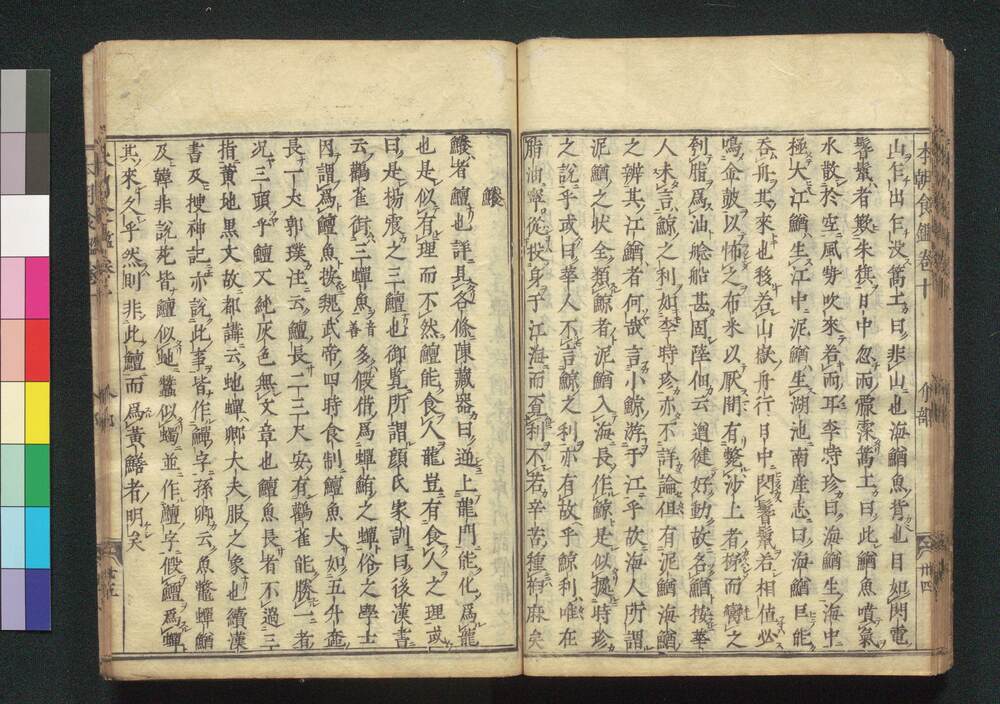 本朝食鑑卷十 介部 卅四
山乍出乍没篙工曰非山也海鰌魚背也目如閃電
鬐鬣者數朱旗日中忽雨霂霂篙工曰此鰌魚噴氣
水散於空風勢吹來若雨耳李時珍曰海鰌生海中
極大江鰌生江中泥鰌生湖池南産志曰海鰌巨能
吞舟其來也移若山嶽舟行日中閃鬐鬣若相値必
鳴金皷以怖之布米以厭間有斃沙上者梯而臠之
刳脂爲油艌船甚固陸佃云遒徤好動故名鰌按華
人未言鯨之利如李時珍亦不詳論但有泥鰌海鰌
之辨其江鰌者何哉言小鯨游于江乎故海人所謂
泥鰌之状全類鯨者泥鰌入海長作鯨是似據時珍
之說乎或曰華人不言鯨之利亦有故乎鯨利唯在
脂油寧從投身于江海而貪利不若辛苦種荏麻矣
鱣
鱣者鱣也詳具各條陳藏器曰通上龍門能化爲龍
也是似有理而不然鱣能食人龍豈有食人之理或
曰是楊震之三鱣也御覧所謂顔氏家訓曰後漢書
云鸛雀銜三蟬魚音善多假借爲蟬鮪之蟬俗之學士
因謂爲鱣魚按魏武帝四時食制鱣魚大如五斗奩
長一丈郭璞注云鱣長二三丈安有鸛雀能勝一者
况三頭乎鱣又純灰色無文章也鱣魚長者不過三
指黄地黒文故都講云蛇蟬卿大夫服之象也續漢
書及搜神記亦說此事皆作鱓字孫卿云魚鼈蟬鰌
及韓非說苑皆鱣似蛇蠶似蠋並作鱣字假鱣爲蟬
其來久乎然則非此鱣而爲黄鱔者明矣